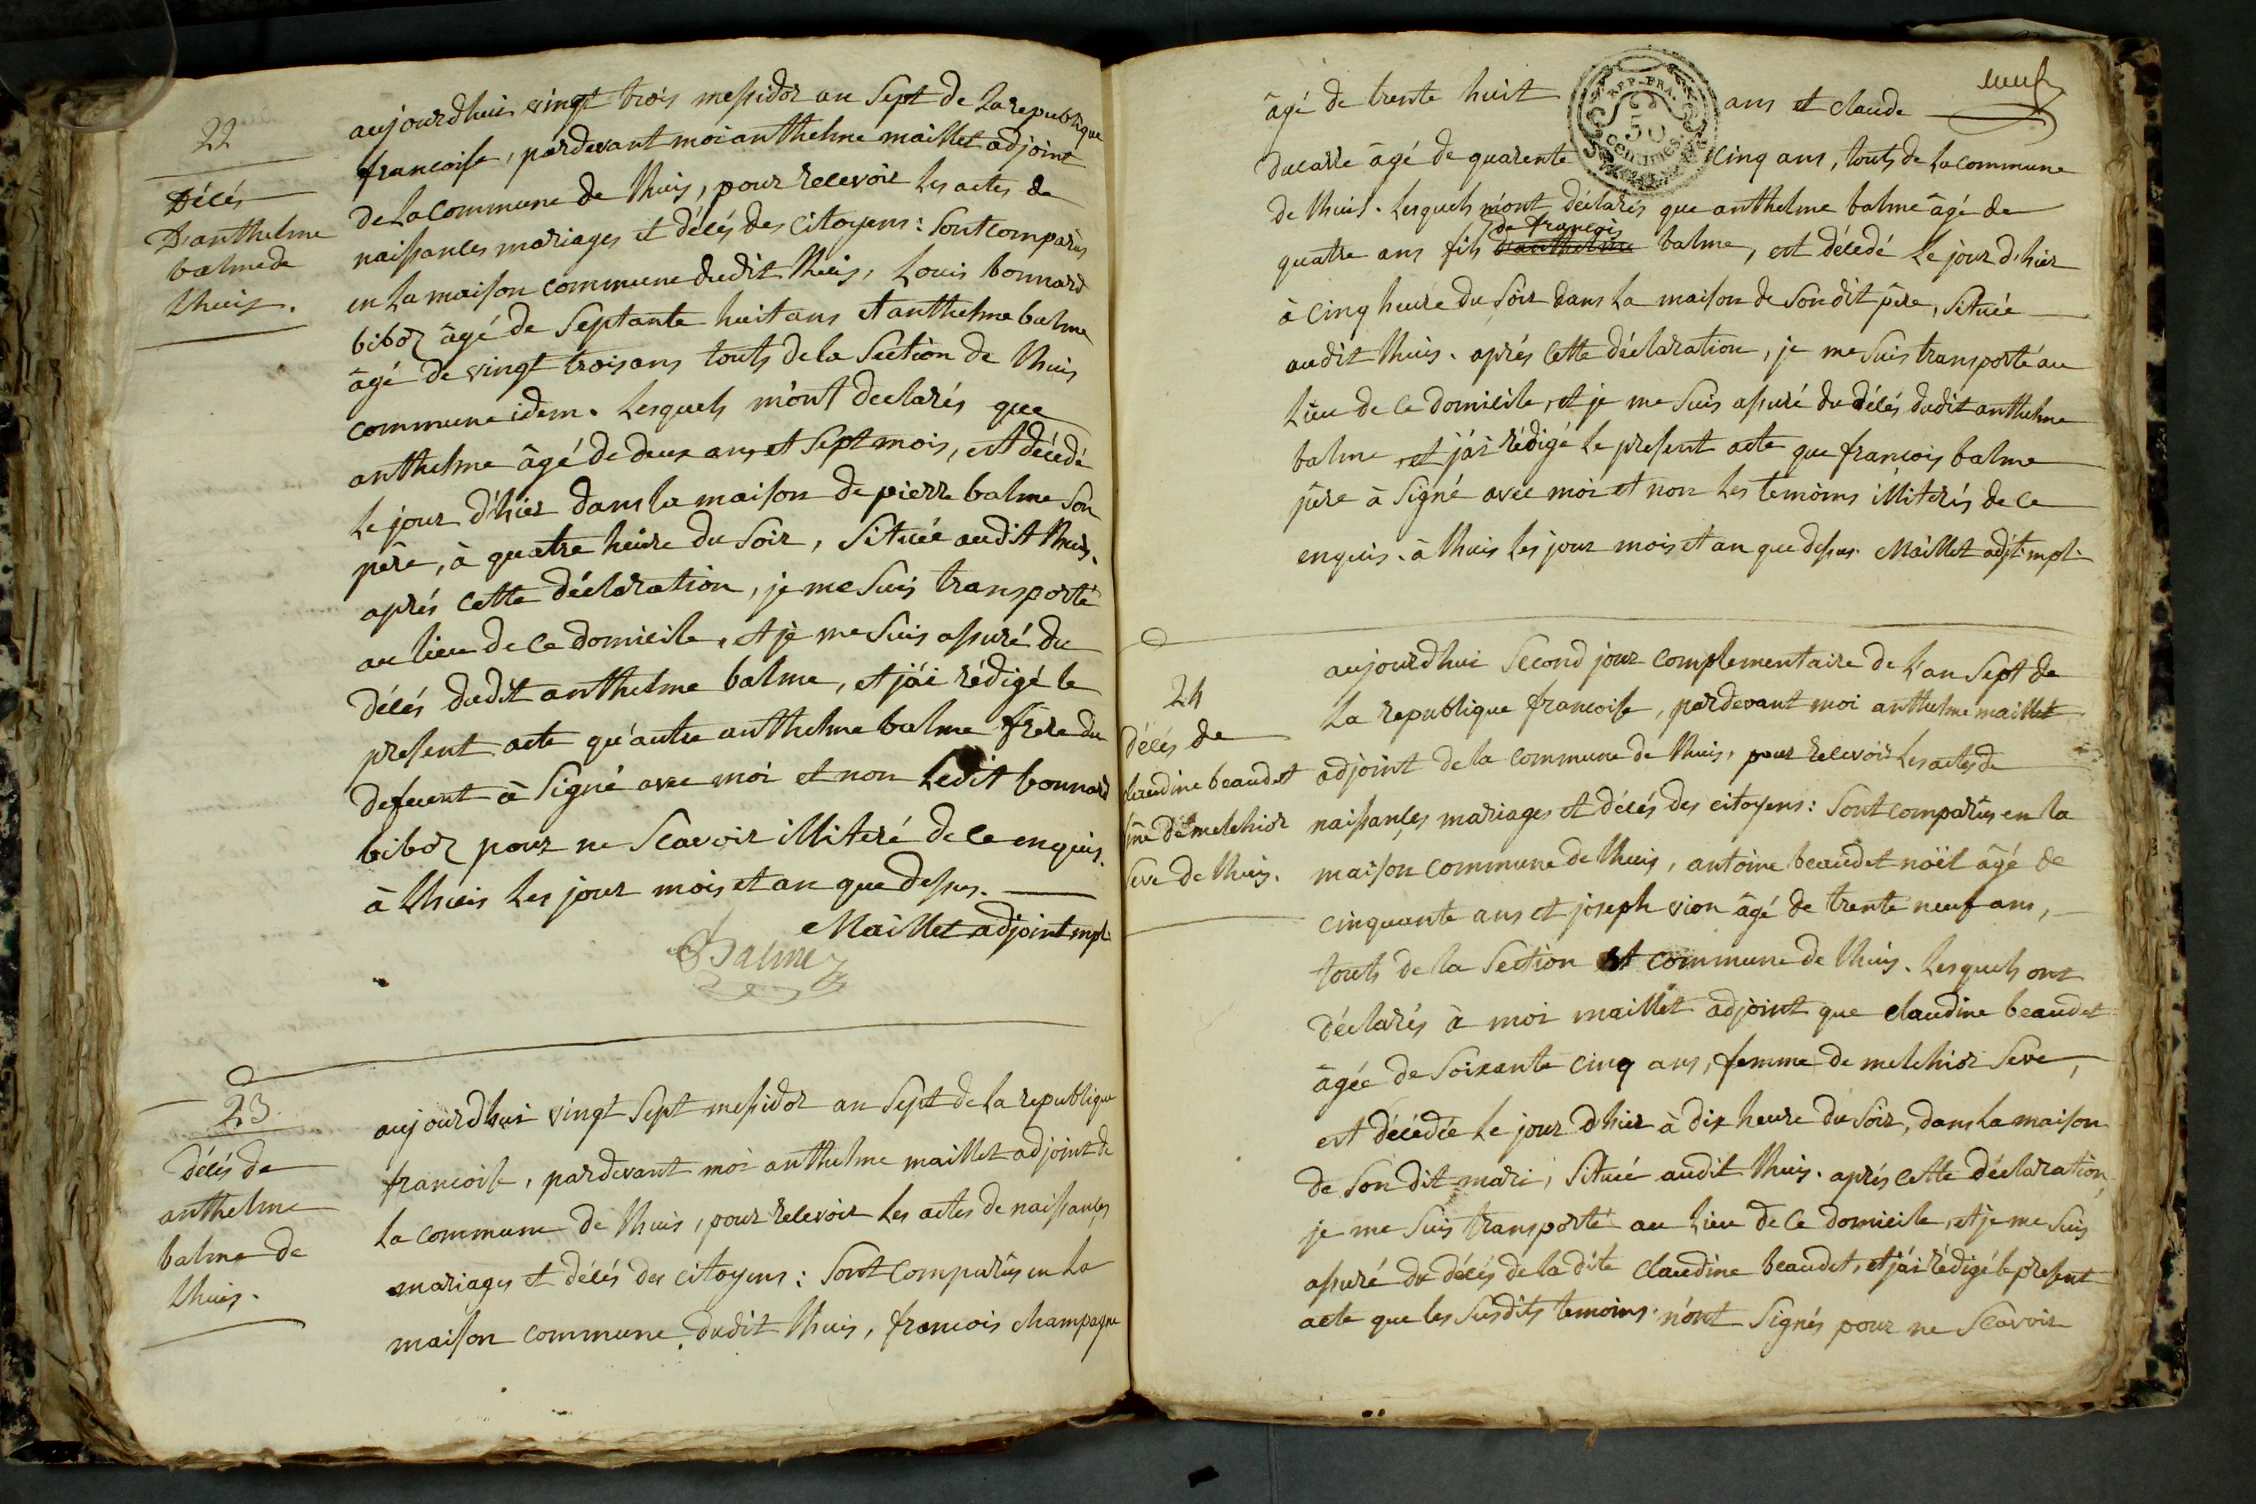 22
Décés
D'anthelme
balme de
Lhuis.
aujourdhui vingt trois messidor an Sept de La republique
francoise, pardevant moi anthelme maillet adjoint
de La Commune de Lhuis, pour recevoir Les actes de
naissances mariages et décés des Citoyens: Sont comparûs
en La maison commune dudit Lhuis, Louis bonnard
bibor âgé de Septante huit ans et anthelme balme
âgé de vingt trois ans touts de la Section de Lhuis
commune idem. Lesquels m'ont declarés que
anthelme âgé de deux ans et Sept mois, est décédé
Le jour d'hier dans la maison de pierre balme Son
pére, à quatre heure du Soir, Située audit Lhuis.
aprés cette déclaration, je me Suis transporté
au lieu de ce domicile, et je me Suis assuré du
décés dudit anthelme balme, et j'ai rédigé le
present acte qu'autre anthelme balme frére du
defuent à Signé avec moi et non Ledit bonnard
bibor pour ne Scavoir illiteré de ce enquis.
à Lhuis Les jour mois et an que dessus.
Maillet adjoint mpl.
Balme
23
décés de
anthelme
balme de
Lhuis.
aujourdhui vingt Sept messidor an Sept de La republique
francoise, pardevant moi anthelme maillet adjoint de
La commune de Lhuis, pour recevoir Les actes de naissances
mariages et décés des citoyens: Sont Comparûs en La
maison commune dudit Lhuis, francois champagne
neuf
REP. FRA.
50
Centimes
âgé de trente huit ans et claude
ducarre âgé de quarente Cinq ans, touts de La commune
de Lhuis. Lesquels m'ont déclarés que anthelme balme âgé de
de françois
quatre ans fils d'anthelme balme, est décedé Le jour d'hier
à Cinq heure du Soir dans La maison de Sondit pére, Située
audit Lhuis. aprés Cette déclaration, je me Suis transporté au
Lieu de Ce domicile, et je me Suis assuré du décés dudit anthelme
balme et j'ai rédigé Le present acte que francois balme
pére à Signé avec moi et non Les temoins illiterés de Ce
enquis. à Lhuis Les jour mois et an que dessus. Maillet adjt. mpl.
24
décés de
claudine beaudet
fme de melchior
Seve de Lhuis.
aujourdhui Second jour Complementaire de L'an Sept de
La republique francoise, pardevant moi anthelme maillet
adjoint de la Commune de Lhuis, pour recevoir Les actes de
naissances mariages et décés des citoyens: Sont comparûs en la
maison commune de Lhuis, antoine beaudet noël âgé de
cinquante ans et joseph vion âgé de trente neuf ans,
touts de la Section et commune de Lhuis. Lesquels ont
déclarés à moi maillet adjoint que claudine beaudet
âgée de Soixante Cinq ans, femme de melchior Seve,
est décédée Le jour d'hier à dix heure du Soir, dans La maison
de Son dit mari, Située audit Lhuis. aprés cette déclaration,
je me Suis transporté au Lieu de Ce domicile, et je me Suis
assuré du décés de la dite Claudine beaudet, et j'ai rédigé le present
acte que les Susdits temoins n'ont Signés pour ne Scavoir